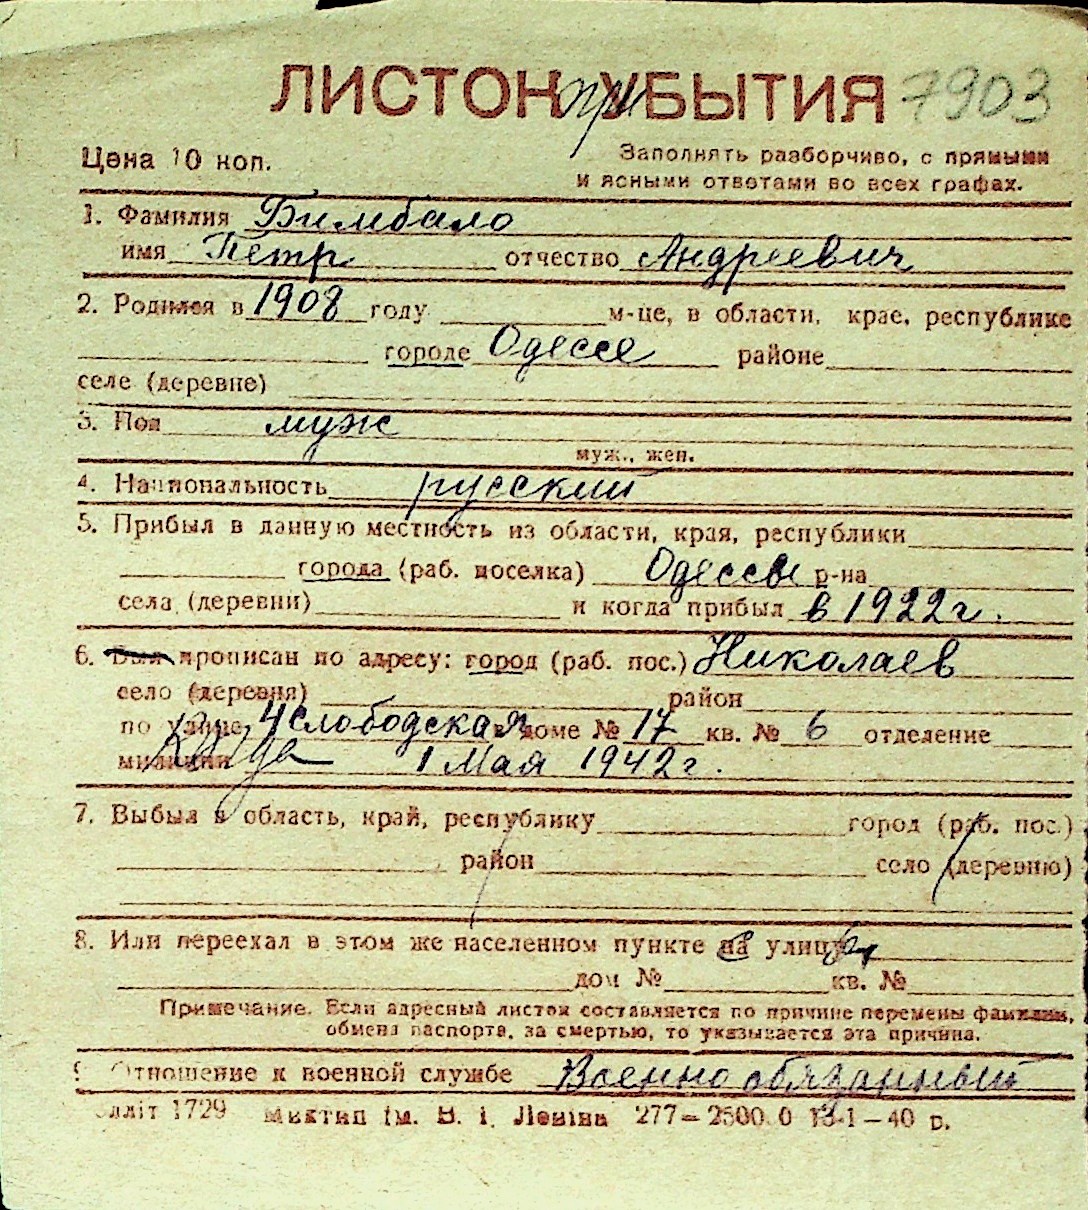 ЛИСТОК при УБЫТИЯ 7903
Цена 10 коп.
Заполнять разборчиво, с прямыми
и ясными ответами во всех графах.
1. Фамилия Бимбало
имя Петр отчество Андреевич
2. Родился в 1908 году м-це, в области, крае, республике
городе Одессе районе
селе (деревне)
3. Пол муж
муж., жен.
4. Национальность русский
5. Прибыл в данную местность из области, края, республики
города (раб. поселка) Одессы р-на
села (деревни) и когда прибыл в 1922 г.
6. Был прописан по адресу: город (раб. пос.) Николаев
село (деревня) район
по улице 4 Слободская в доме № 17 кв. № 6 отделение
милиции Когда 1 Мая 1942 г.
7. Выбыл в область, край, республику город (раб. пос.)
район село (деревню)
8. Или переехал в этом же населенном пункте на улицу
дом № кв. №
Примечание. Если адресный листок составляется по причине перемены фамилии,
обмена паспорта, за смертью, то указывается эта причина.
9. Отношение к военной службе Военнообязанный
1729 Миктип ім. В. І. Леніна 277—2500.0 13-1—40 р.